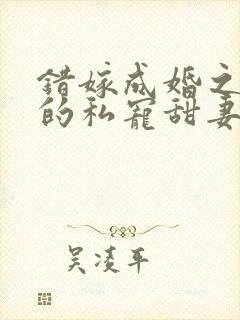 错嫁成婚之
的私宠甜妻
吴凌平